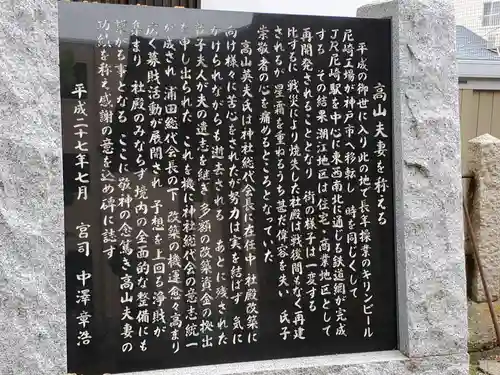 高山夫妻を称える
平成の御世に入り此の地で長年操業のキリンビール
尼崎工場が神戸市へ移転 時を同じくして
JR尼崎駅を中心に東西南北に通じる鉄道網が完成
する その結果 潮江地区は住宅・商業地区として
再開発されるにともなひ 街の様子は一変する
比するに 戦災により焼失した社殿は戦後間もなく再建
されるが 星霜を重ねるうち甚だ偉容を失い 氏子
崇敬者の心を痛めるところとなっていた
高山英夫氏は神社総代会長に在任中 社殿改築に
向け様々に苦心をされたが努力は実を結ばず 気に
がけながらも逝去される あとに残された
子夫人が夫の遺志を継ぎ 多額の改築資金の拠出
申し出られた これを機に神社総代会の意志統一
が成され 浦田総代会長の下 改築の機運愈々高まり
広く募財活動が展開され 予想を上回る浄財が
集まり 社殿のみならず境内の全面的な整備にも
繋がる事となる ここに敬神の念篤き高山夫妻の
功績を称え感謝の意を込め碑に誌す
平成二十七年七月 宮司 中澤章浩